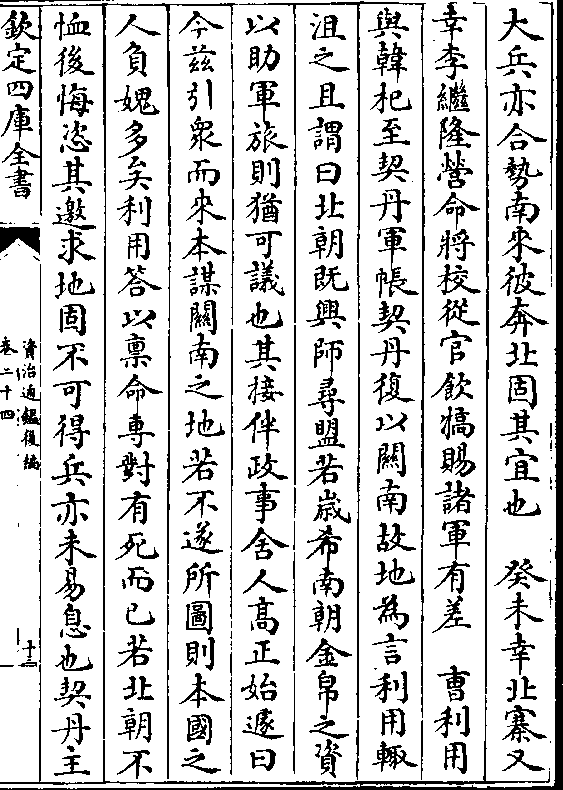 大兵亦合勢南來彼奔北固其宜也　癸未幸北寨又
幸李繼隆營命將校從官飲犒賜諸軍有差　曹利用
與韓杞至契丹軍帳契丹復以關南故地為言利用輙
沮之且謂曰北朝既興師尋盟若歲希南朝金帛之資
以助軍旅則猶可議也其接伴政事舍人髙正始遽曰
今兹引衆而來本謀關南之地若不遂所圖則本國之
人負媿多矣利用答以禀命專對有死而已若北朝不
恤後悔恣其邀求地固不可得兵亦未易息也契丹主
欽定四庫全書
資治通鑑後編
卷二十四
十三